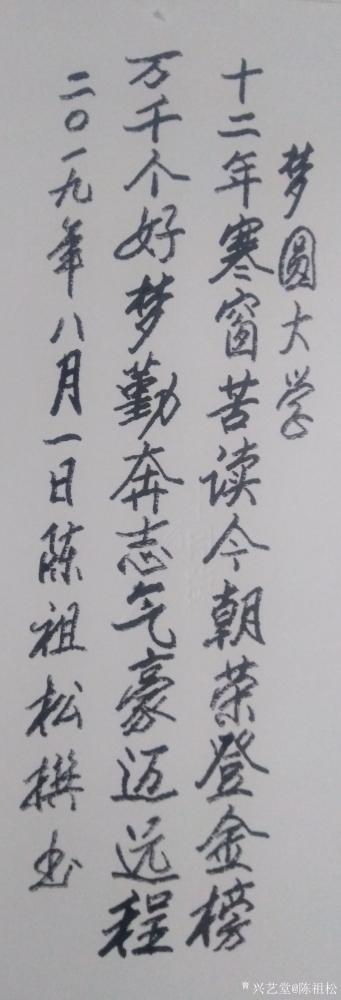 梦圆大学
十二年寒窗苦读今朝荣登金榜
万千个好梦勤奔志气豪迈远程
二〇一九年八月一日陈祖松撰书
兴艺堂@陈祖松